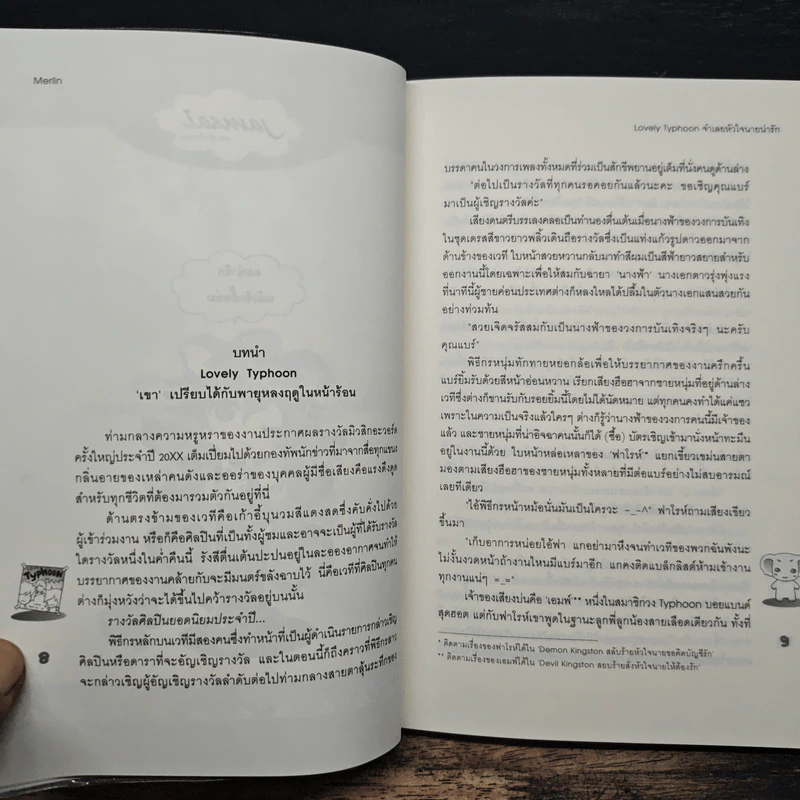 Merlin
บทนำ
Lovely Typhoon
'เขา' เปรียบได้กับพายุหลงฤดูในหน้าร้อน
ท่ามกลางความหรูหราของงานประกาศผลรางวัลมิวสิกอะวอร์ด
ครั้งใหญ่ประจำปี 20XX เต็มเปี่ยมไปด้วยกองทัพนักข่าวที่มาจากสื่อทุกแขนง
กลิ่นอายของเหล่าคนดังและออร่าของบุคคลผู้มีชื่อเสียงคือแรงดึงดูด
สำหรับทุกชีวิตที่ต้องมารวมตัวกันอยู่ที่นี่
ด้านตรงข้ามของเวทีคือเก้าอี้บุนวมสีแดงสดซึ่งคับคั่งไปด้วย
ผู้เข้าร่วมงาน หรือก็คือศิลปินที่เป็นทั้งผู้ชมและอาจจะเป็นผู้ที่ได้รับรางวัล
ใดรางวัลหนึ่งในค่ำคืนนี้ รังสีตื่นเต้นปะปนอยู่ในละอองอากาศจนทำให้
บรรยากาศของงานคล้ายกับจะมีมนตร์ขลังฉาบไว้ นี่คือเวทีที่ศิลปินทุกคน
ต่างก็มุ่งหวังว่าจะได้ขึ้นไปคว้ารางวัลอยู่บนนั้น
รางวัลศิลปินยอดนิยมประจำปี...
พิธีกรหลักบนเวทีมีสองคนซึ่งทำหน้าที่เป็นผู้ดำเนินรายการกล่าวเชิญ
ศิลปินหรือดาราที่จะอัญเชิญรางวัล และในตอนนี้ก็ถึงคราวที่พิธีกรสาว
จะกล่าวเชิญผู้อัญเชิญรางวัลลำดับต่อไปท่ามกลางสายตาลุ้นระทึกของ
TYPHOON
8
Lovely Typhoon จำเลยหัวใจนายน่ารัก
บรรดาคนในวงการเพลงทั้งหมดที่ร่วมเป็นสักขีพยานอยู่เต็มที่นั่งคนดูด้านล่าง
"ต่อไปเป็นรางวัลที่ทุกคนรอคอยกันแล้วนะคะ ขอเชิญคุณแบร์
มาเป็นผู้เชิญรางวัลค่ะ"
เสียงดนตรีบรรเลงคลอเป็นทำนองตื่นเต้นเมื่อนางฟ้าของวงการบันเทิง
ในชุดเดรสสีขาวยาวพลิ้วเดินถือรางวัลซึ่งเป็นแท่งแก้วรูปดาวออกมาจาก
ด้านข้างของเวที ใบหน้าสวยหวานกลับมาทำสีผมเป็นสีฟ้ายาวสยายสำหรับ
ออกงานนี้โดยเฉพาะเพื่อให้สมกับฉายา 'นางฟ้า' นางเอกดาวรุ่งพุ่งแรง
ที่นาทีนี้ผู้ชายค่อนประเทศต่างก็หลงใหลได้ปลื้มในตัวนางเอกแสนสวยกัน
อย่างท่วมท้น
"สวยเจิดจรัสสมกับเป็นนางฟ้าของวงการบันเทิงจริงๆ นะครับ
คุณแบร์"
พิธีกรหนุ่มทักทายหยอกล้อเพื่อให้บรรยากาศของงานครึกครื้น
แบร์ยิ้มรับด้วยสีหน้าอ่อนหวาน เรียกเสียงฮือฮาจากชายหนุ่มที่อยู่ด้านล่าง
เวทีซึ่งต่างก็ขานรับกับรอยยิ้มนี้โดยไม่ได้นัดหมาย แต่ทุกคนคงทำได้แค่แซว
เพราะในความเป็นจริงแล้วใครๆ ต่างก็รู้ว่านางฟ้าของวงการคนนี้มีเจ้าของ
แล้ว และชายหนุ่มที่น่าอิจฉาคนนั้นก็ได้ (ซื้อ) บัตรเชิญเข้ามานั่งหน้าทะมึน
อยู่ในงานนี้ด้วย ใบหน้าหล่อเหลาของ 'ฟาโรห์'* แยกเขี้ยวเขม่นสายตา
มองตามเสียงฮือฮาของชายหนุ่มทั้งหลายที่มีต่อแบร์อย่างไม่สบอารมณ์
เลยทีเดียว
"ไอ้พิธีกรหน้าหม้อนั่นมันเป็นใครวะ -_-^" ฟาโรห์ถามเสียงเขียว
ขึ้นมา
"เก็บอาการหน่อยไอ้ฟา แกอย่ามาหึงจนทำเวทีของพวกฉันพังนะ
ไม่งั้นงวดหน้าถ้างานไหนมีแบร์มาอีก แกคงติดแบล็กลิสต์ห้ามเข้างาน
ทุกงานแน่ๆ =_="
เจ้าของเสียงบ่นคือ 'เอมพ์'** หนึ่งในสมาชิกวง Typhoon บอยแบนด์
สุดฮอต แต่กับฟาโรห์เขาพูดในฐานะลูกพี่ลูกน้องสายเลือดเดียวกัน ทั้งที่
* ติดตามเรื่องของฟาโรห์ได้ใน 'Demon Kingston สลับร้ายหัวใจนายขอคิดบัญชีรัก'
** ติดตามเรื่องของเอมพ์ได้ใน 'Devil Kingston สยบร้ายสั่งหัวใจนายให้ต้องรัก'
9